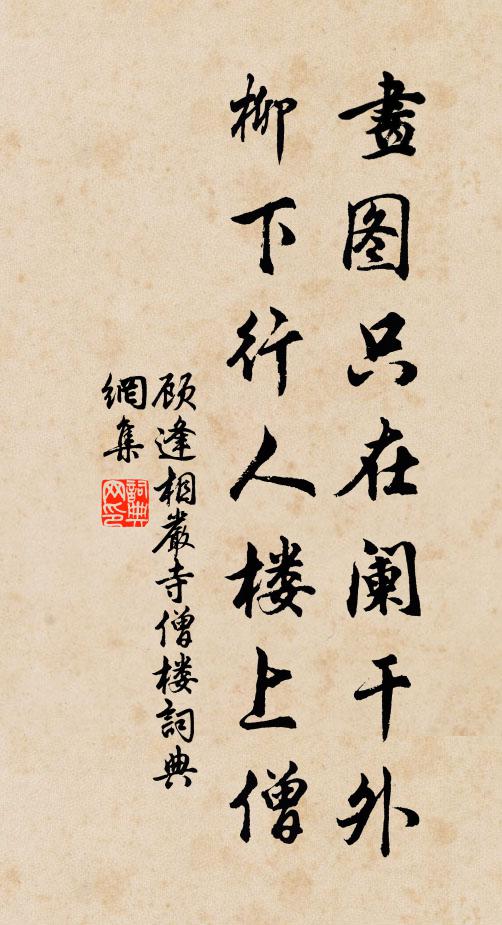 畫图只在阑干外
柳下行人楼上僧
顾逢相嚴寺僧楼詞典
網集
詞典
网印